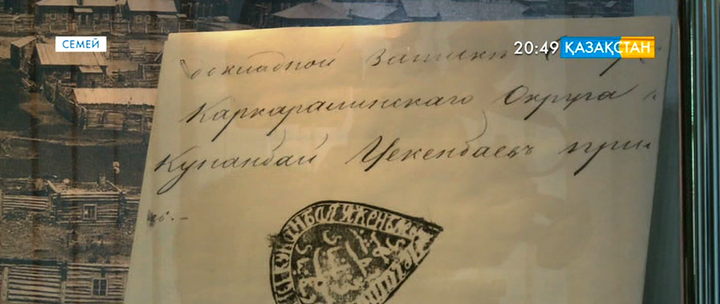 СЕМЕЙ
20:49 ҚАЗАҚСТАН
докладной Записки
Каркаралинскаго Округа
Кунанбай Ускенбаевъ при